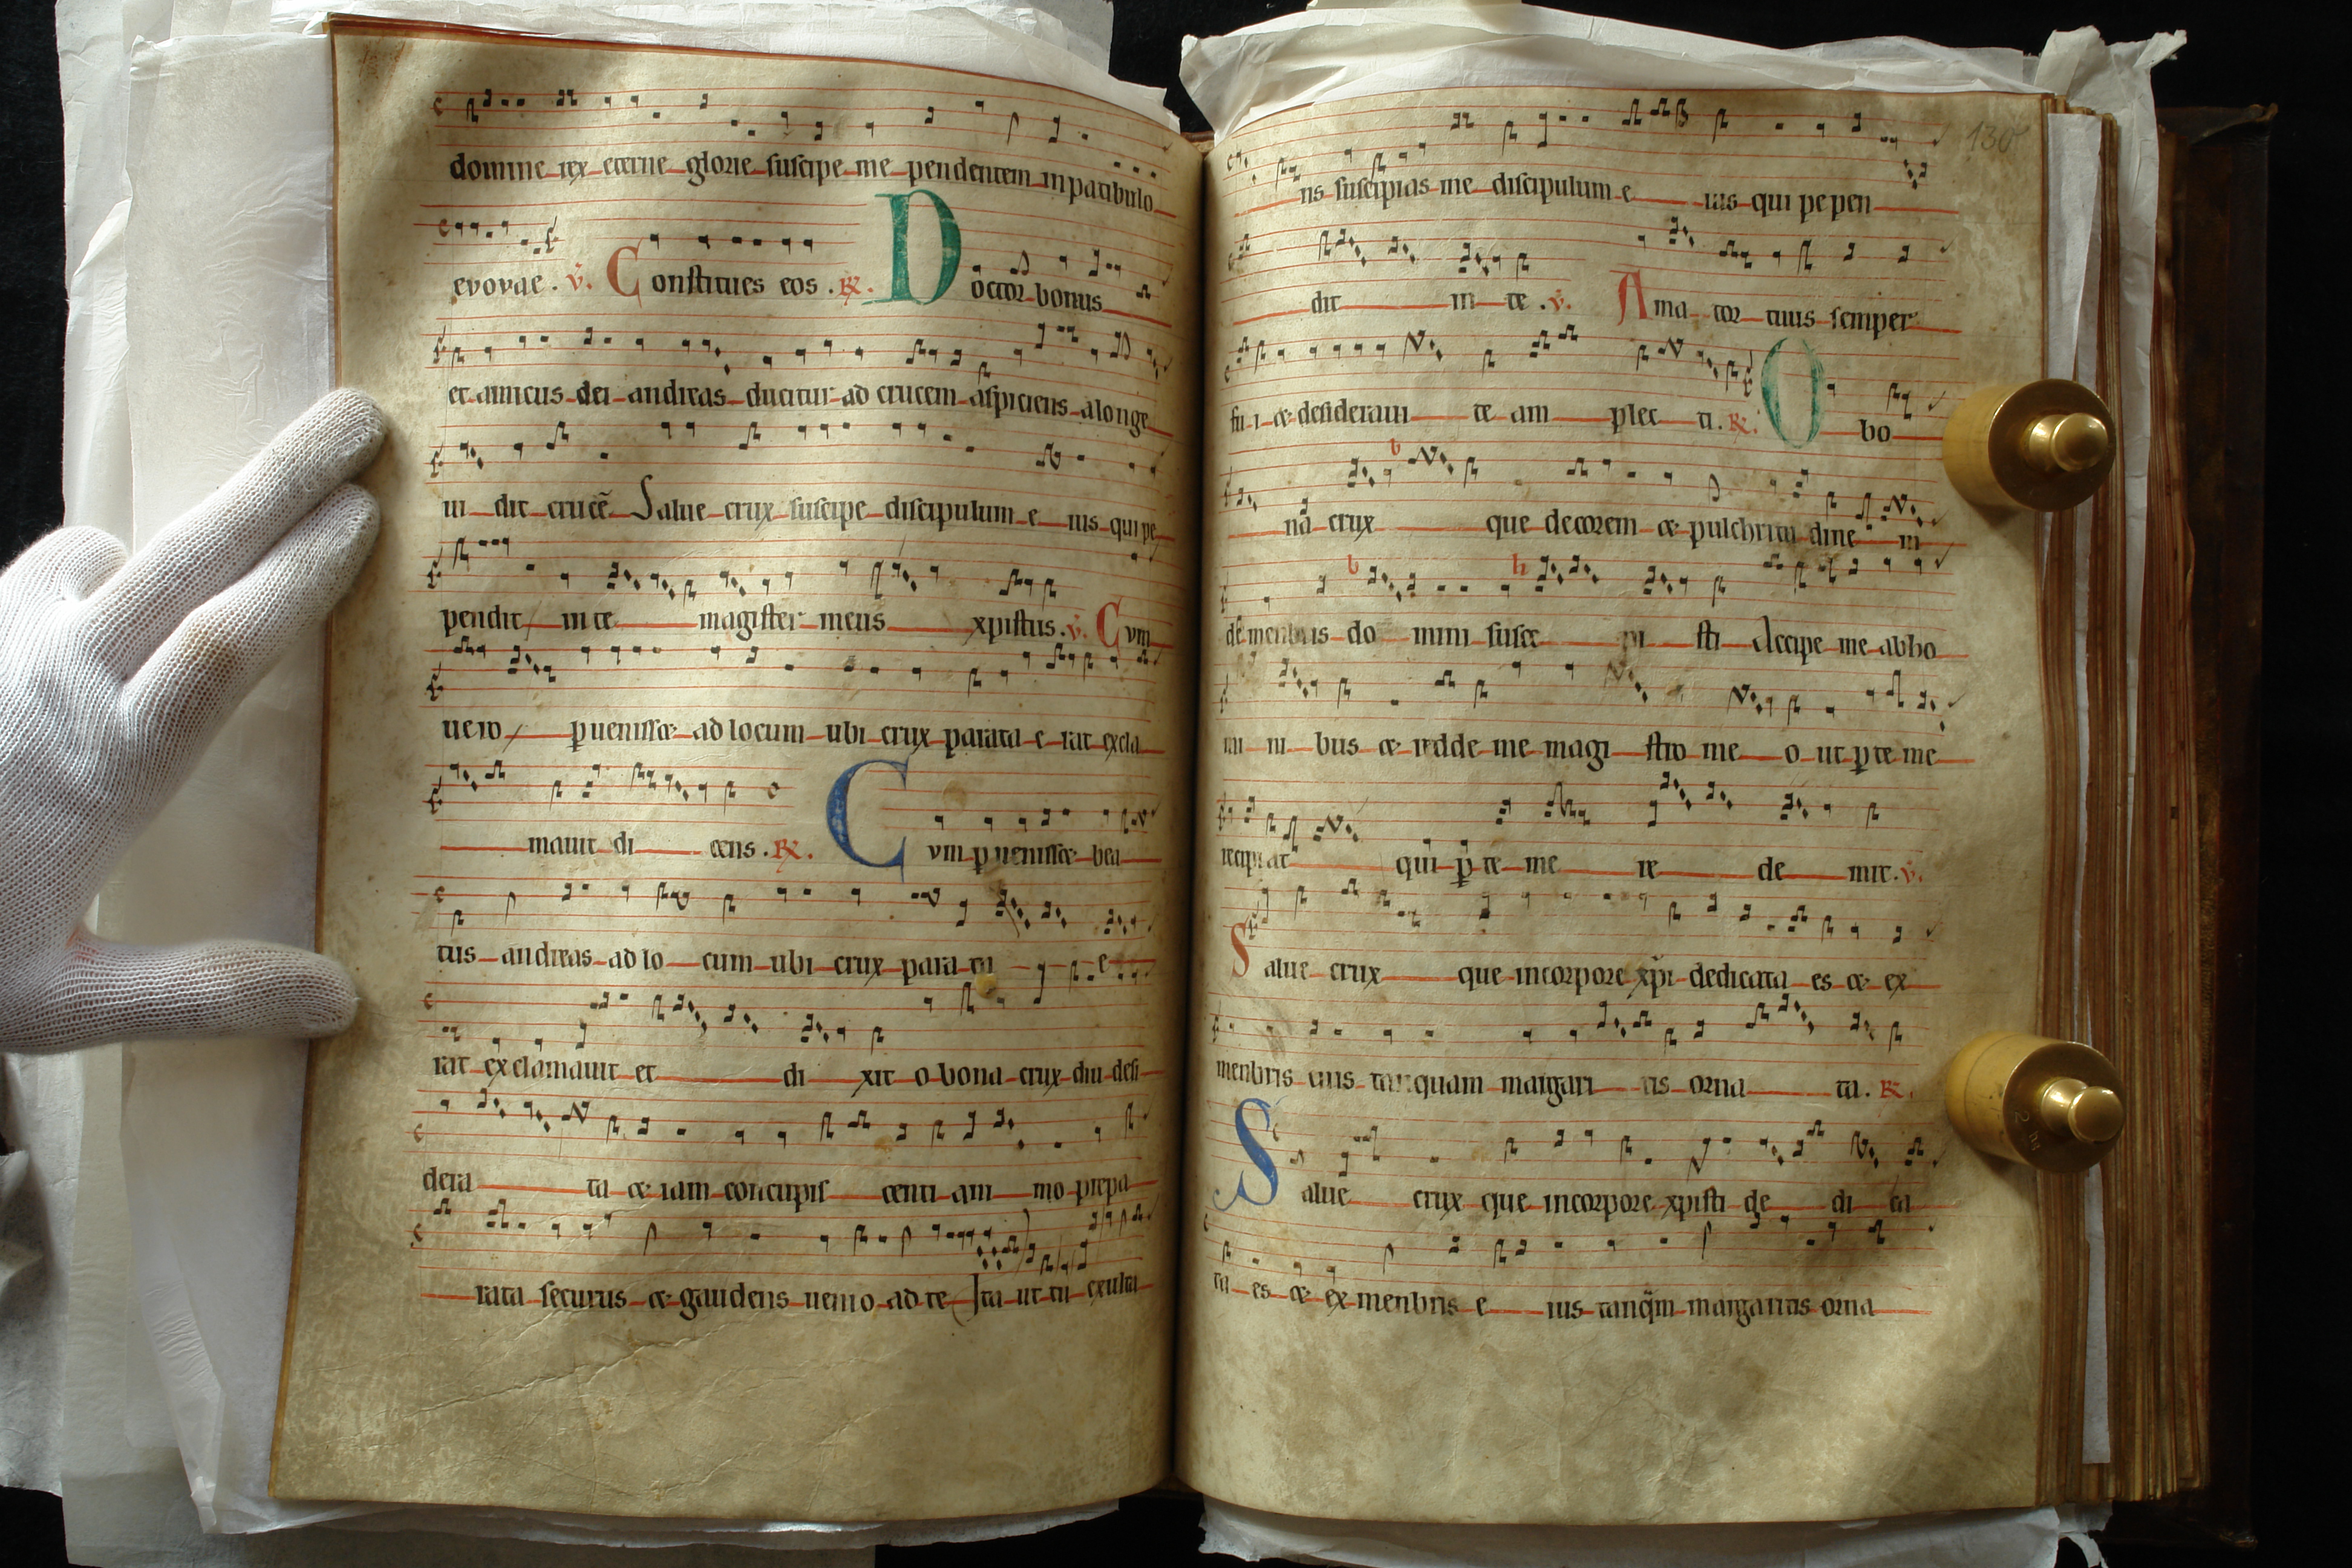 domine rex eterne glorie suscipe me pendentem in patibulo
evovae. v. Constitues eos. R. Doctor bonus
et amicus dei andreas ducitur ad crucem aspiciens alonge
ui dit crucē Salue crux suscipe discipulum e ius qui pe
pendit in te magister meus xpistus. v. Cvm
uero puenisset ad locum ubi crux parata e rat excla
mauit di cens. R. Cvm puenisset bea
tus andreas ad lo cum ubi crux para ta e
rat exclamauit et di xit o bona crux diu desi
dera ta et iam concupis centi am mo prepa
rata securus et gaudens uenio ad te Ita ut tu exulta
130
ns suscipias me discipulum e ius qui pe pen
dit in te. v. Ama tor tuus semper
fu i et desideraui te am plec ti. R. O bo
b
na crux que decorem et pulchritu dine in
b h
de menbris do mini susce pi sti Accipe me ab ho
mi ni bus et redde me magi stro me o ut p te me
recipiat qui p te me re de mit. v.
Salue crux que in corpore xpi dedicata es et ex
menbris eius tanquam margari tis orna ta. R.
Salue crux que in corpore xpisti de di ca
ta es et ex menbris e ius tanqm margaritis orna